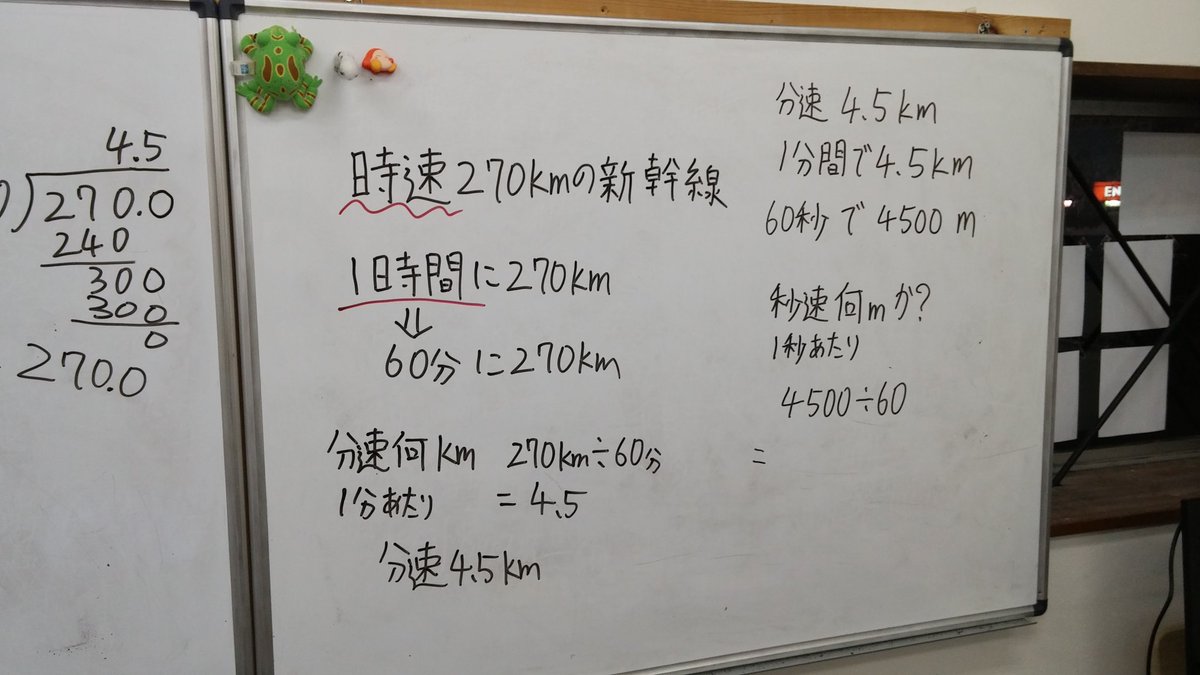 4.5
)270.0
240
300
300
0
270.0
時速270kmの新幹線
1時間に270km
⇓
60分に270km
分速何km 270km÷60分
1分あたり =4.5
分速4.5km
分速 4.5km
1分間で4.5km
60秒で4500m
秒速何mか?
1秒あたり
4500÷60
=
EN